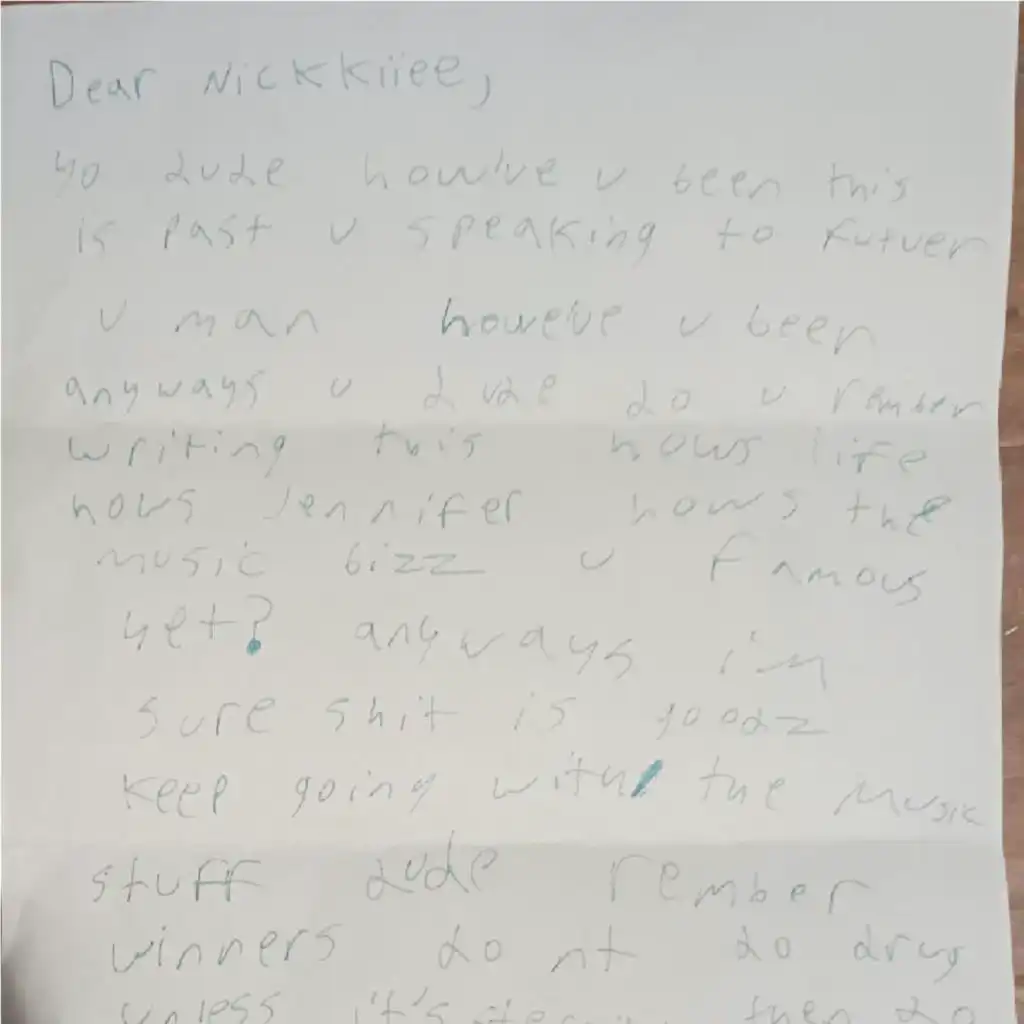 Dear Nickkiiee,
yo dude how've u been this
is past u speaking to futuer
u man howeve u been
anyways u dude do u rember
writing this hows life
hows Jennifer hows the
music bizz u famous
yet? anyways i'm
sure shit is goodz
keep going with the music
stuff dude rember
winners do nt do drug
unless it's then do